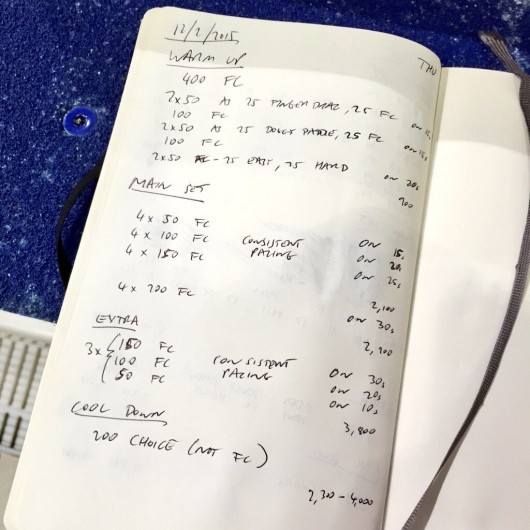 12/2/2015
THU
WARM UP
400 FC
2x50 AS 25 FINGER DRAG, 25 FC ON 15s
100 FC
2x50 AS 25 DOGGY PADDLE, 25 FC ON 15s
100 FC
2x50 FC - 25 EASY, 25 HARD ON 20s
900
MAIN SET
4 x 50 FC ON 15s
4 x 100 FC CONSISTENT ON 20s
4 x 150 FC PACING ON 25s
2,100
4 x 200 FC ON 30s
2,900
EXTRA
3x 150 FC ON 30s
100 FC CONSISTENT ON 20s
50 FC PACING ON 10s
3,800
COOL DOWN
200 CHOICE (NOT FC)
- 4,000